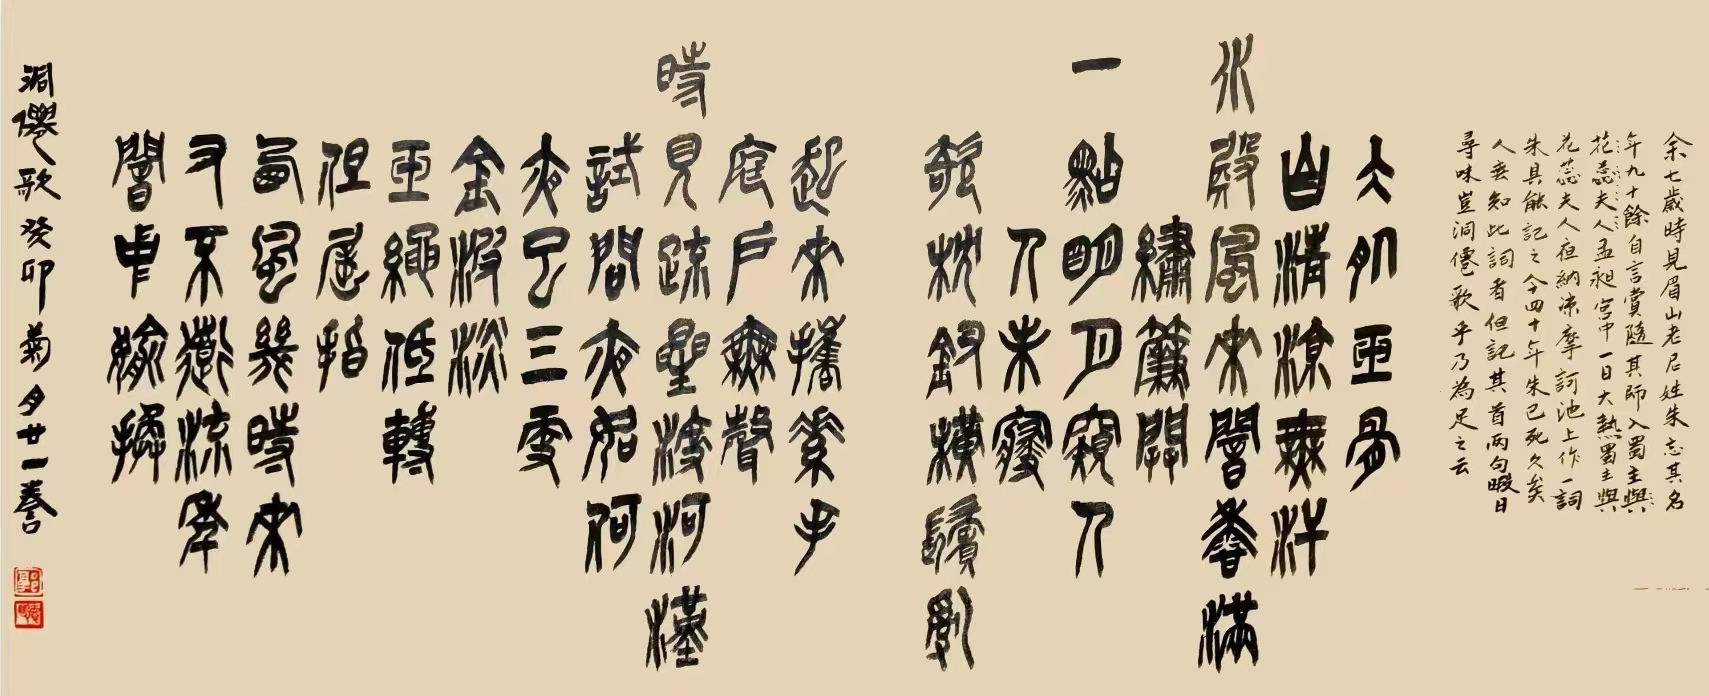 余七歲時見眉山老尼姓朱忘其名
年九十餘自言嘗隨其師入蜀主與
花蕊夫人孟昶宮中一日大熱蜀主與
花蕊夫人夜納涼摩訶池上作一詞
朱具能記之今四十年朱已死久矣
人無知此詞者但記其首兩句暇日
尋味豈洞僊歌乎乃為足之云
仌肌玉骨
自清涼無汗
水殿風來闇香滿
繡簾開
一點明月窺人
人未寢
欹枕釵橫鬢亂
起來攜素手
庭戶無聲
時見疏星渡河漢
試問夜如何
夜已三更
金波淡
玉繩低轉
但屈指
西風幾時來
又不道流年
闇中偷換
洞僊歌 癸卯菊月廿一誊